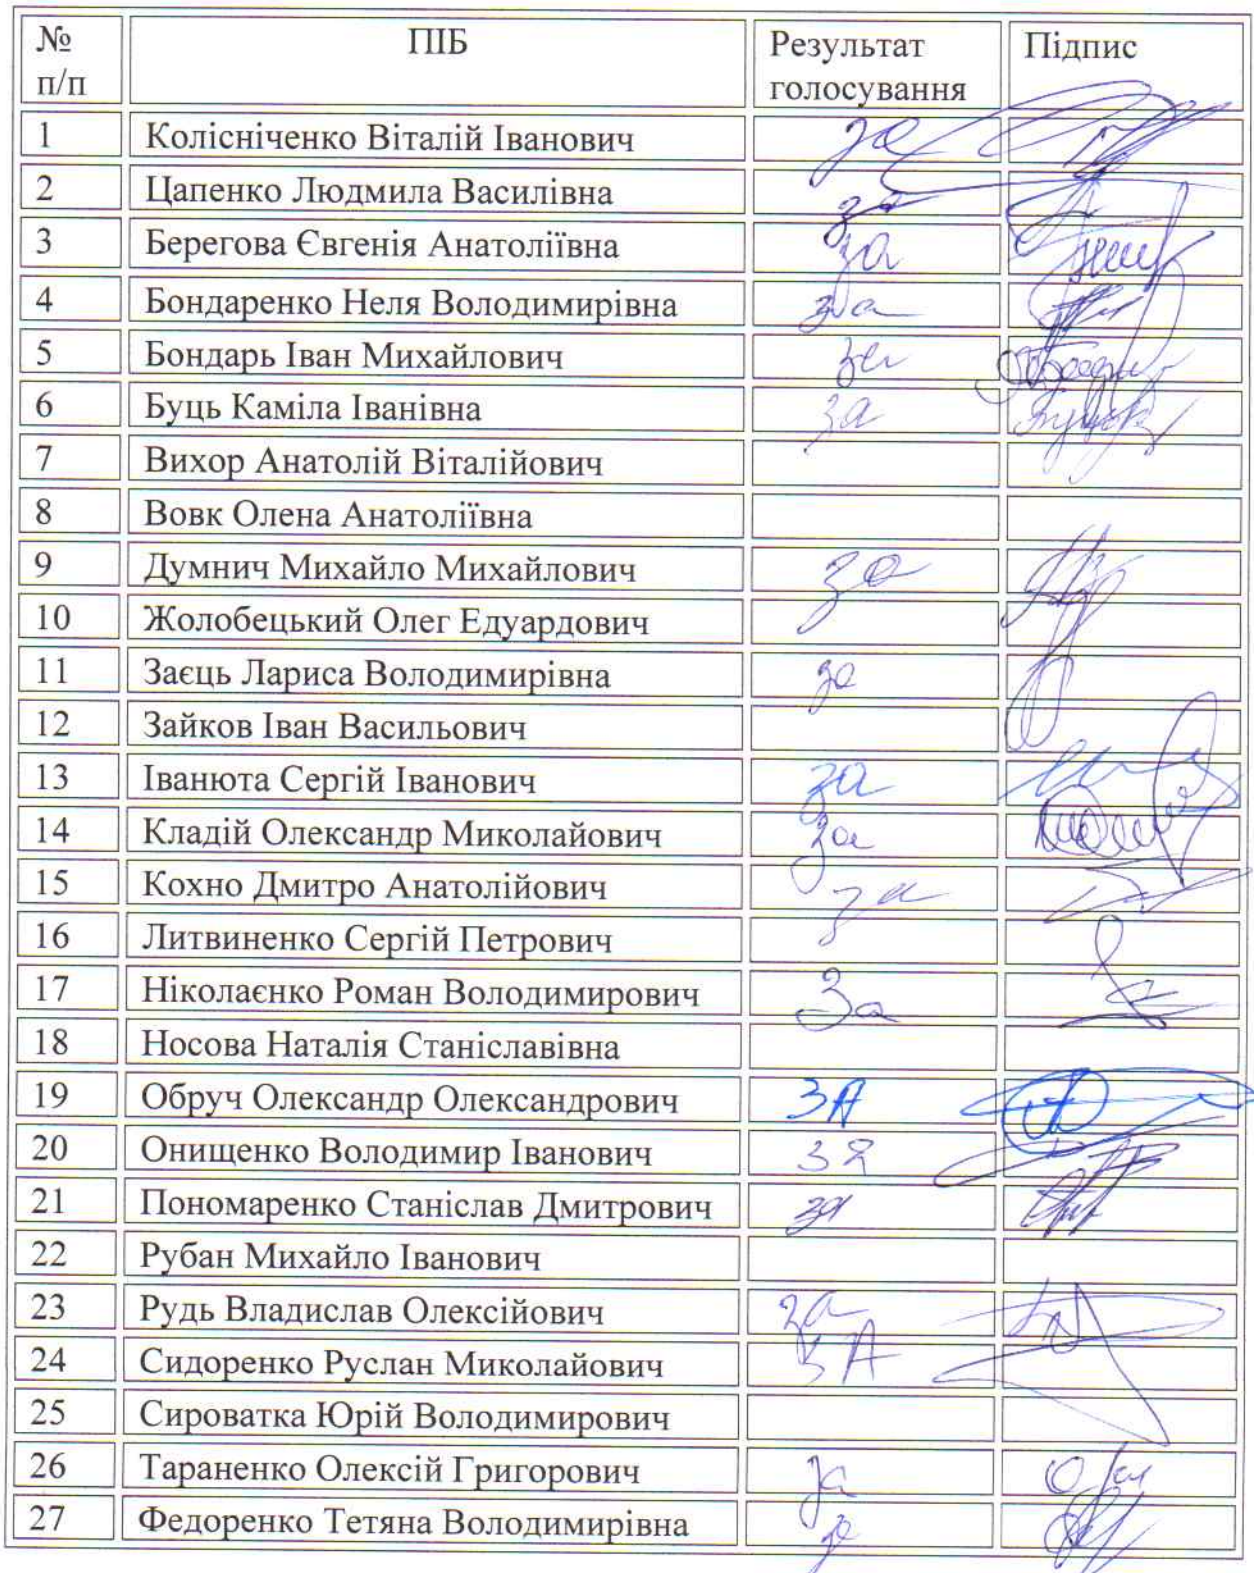 № п/п ПІБ Результат голосування Підпис
1 Колісніченко Віталій Іванович за
2 Цапенко Людмила Василівна за
3 Берегова Євгенія Анатоліївна за
4 Бондаренко Неля Володимирівна за
5 Бондарь Іван Михайлович за
6 Буць Каміла Іванівна за
7 Вихор Анатолій Віталійович
8 Вовк Олена Анатоліївна
9 Думнич Михайло Михайлович за
10 Жолобецький Олег Едуардович
11 Заєць Лариса Володимирівна за
12 Зайков Іван Васильович
13 Іванюта Сергій Іванович за
14 Кладій Олександр Миколайович за
15 Кохно Дмитро Анатолійович за
16 Литвиненко Сергій Петрович
17 Ніколаєнко Роман Володимирович За
18 Носова Наталія Станіславівна
19 Обруч Олександр Олександрович ЗА
20 Онищенко Володимир Іванович за
21 Пономаренко Станіслав Дмитрович за
22 Рубан Михайло Іванович
23 Рудь Владислав Олексійович за
24 Сидоренко Руслан Миколайович ЗА
25 Сироватка Юрій Володимирович
26 Тараненко Олексій Григорович за
27 Федоренко Тетяна Володимирівна за